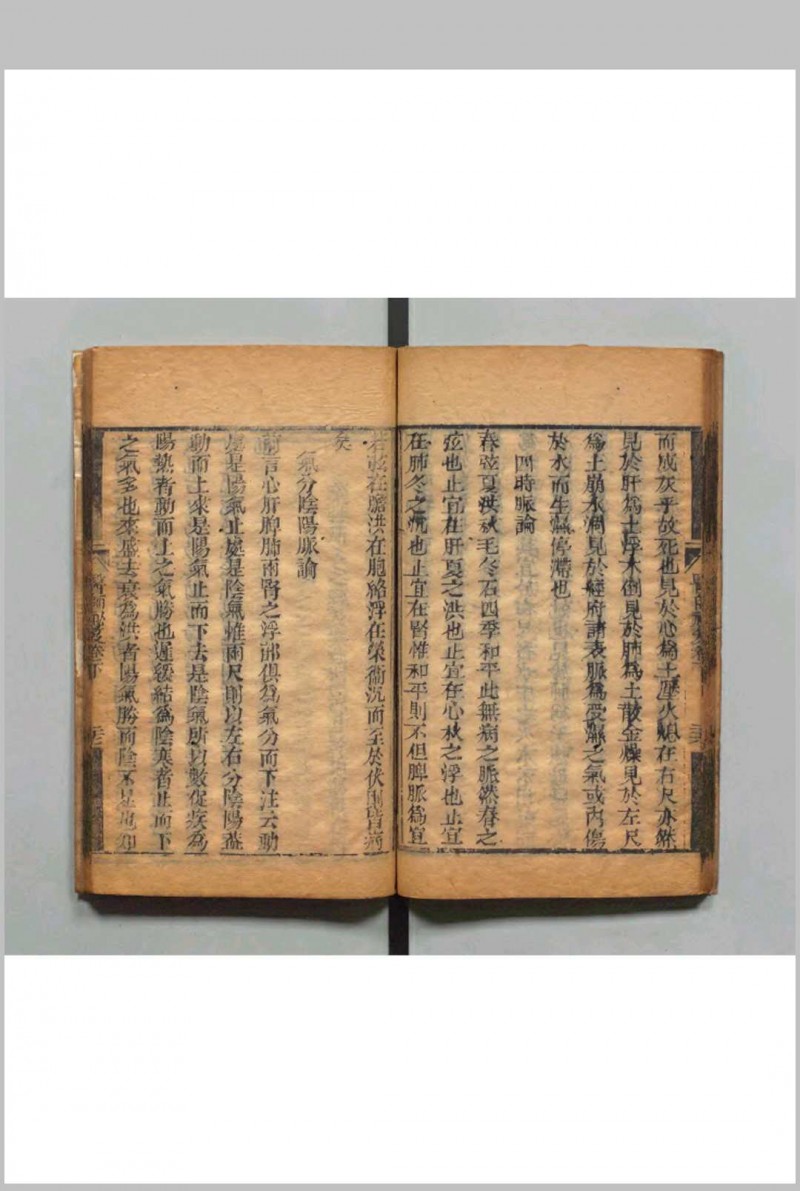 而成灰乎故死也見於心為土壓火熄在右尺亦然
見於肝為土浮木倒見於肺為土散金燥見於左尺
為土崩水涸見於經府諸表脈為受濕之氣或內傷
於水而生濕停滯也
四時脈論
春弦夏洪秋毛冬石四季和平此無病之脈然春之
弦也止宜在肝夏之洪也止宜在心秋之浮也止宜
在肺冬之沉也止宜在腎惟和平則不但脾脈為宜
若弦在膽洪在胞絡浮在榮衛沉而至於伏則皆病
矣
氣分陰陽脈論
前言心肝脾肺兩腎之浮沸俱為氣分而下注云動
處是陽氣止處是陰氣惟兩尺則以左右分陰陽蓋
動而上來是陽氣止而下去是陰氣所以數促疾為
陽熱者動而上之氣勝也遲緩結為陰寒者止而下
之氣多也來盛去衰為洪者陽氣勝而陰不足也如